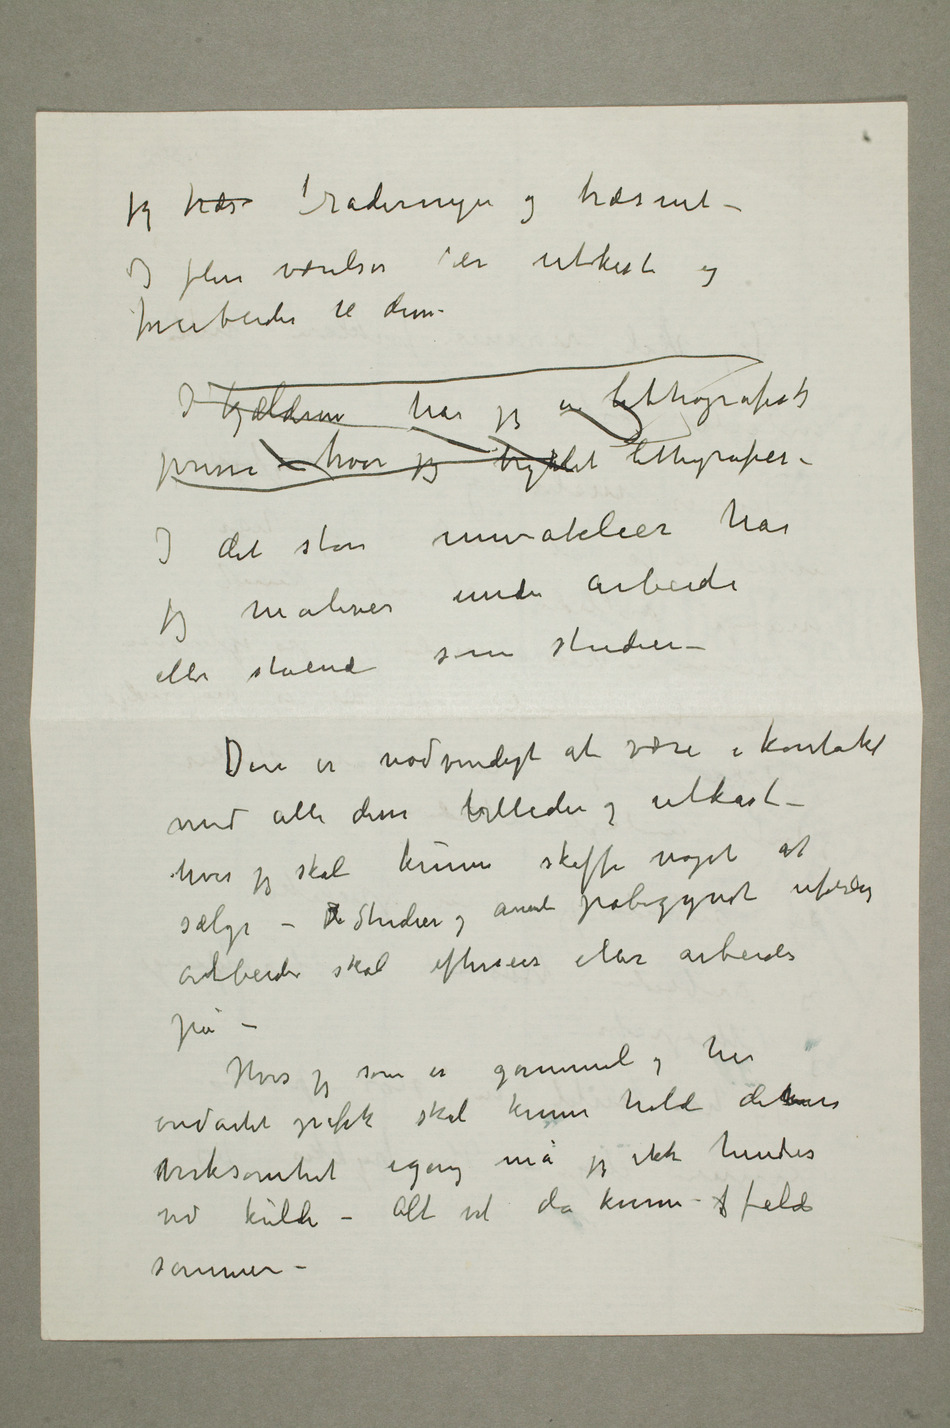 jeg træs raderinger og træsnit –
I flere værelser er utkast og
forarbeider til dem –
I kjælderen har jeg en lithografisk
presse – hvor jeg trykket lithografier –
I det store murateliér har
jeg malerier under arbeide
eller stående som studier –
Det er nødvendigt at være i kontakt
med alle disse billeder og utkast –
hvis jeg skal kunne skaffe noget at
sælge – Studier og andre påbegyndt ufærdig
arbeider skal eftersees eller arbeides
på –
Hvis jeg som er gammel og har
ondartet skal kunne holde denne
virksomhet igang må jeg ikke hindres
ved kulde – Alt vil da kunne falde
sammen –